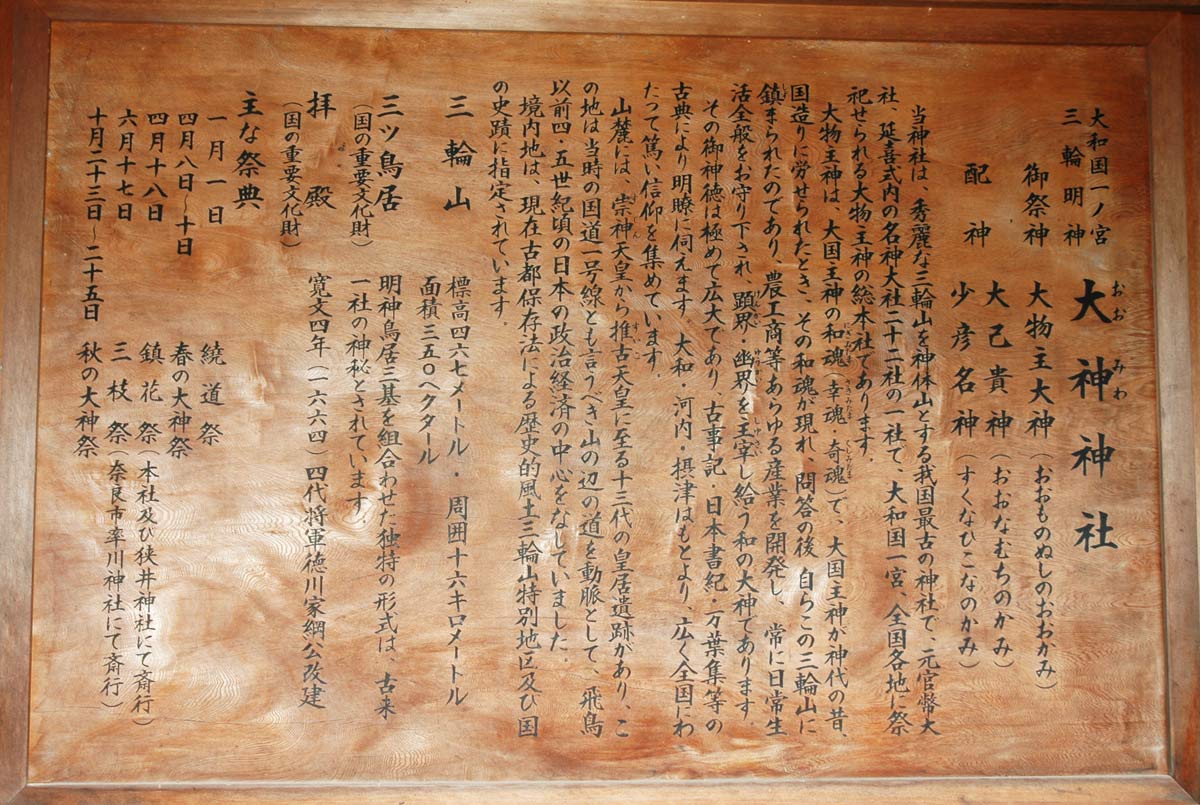 大和国一ノ宮
三輪明神
大神神社
おおみわ
御祭神 大物主大神（おおものぬしのおおかみ）
配神 大己貴神（おおなむちのかみ）
少彦名神（すくなひこなのかみ）
当神社は、秀麗な三輪山を神体山とする我国最古の神社で、元官幣大
社、延喜式内の名神大社二十二社の一社で、大和国一宮、全国各地に祭
祀せられる大物主神の総本社であります。
大物主神は、大国主神の和魂（幸魂 奇魂）で、大国主神が神代の昔、
国造りに労せられたとき、その和魂が現れ、問答の後 自らこの三輪山に
鎮まられたのであり、農工商等あらゆる産業を開発し、常に日常生
活全般をお守り下され、顕界・幽界を主宰し給う和の大神であります。
その御神徳は極めて広大であり、古事記・日本書紀・万葉集等の
古典により明瞭に伺えます。大和・河内・摂津はもとより、広く全国にわ
たって篤い信仰を集めています。
山麓には、崇神天皇から推古天皇に至る十三代の皇居遺跡があり、こ
の地は当時の国道一号線とも言うべき山の辺の道を動脈として、飛鳥
以前四・五世紀頃の日本の政治経済の中心をなしていました。
境内地は、現在古都保存法による歴史的風土三輪山特別地区及び国
の史蹟に指定されています。
三輪山 標高四六七メートル・周囲十六キロメートル
面積三五〇ヘクタール
三ツ鳥居 明神鳥居三基を組合わせた独特の形式は、古来
（国の重要文化財） 一社の神秘とされています。
拝殿 寛文四年（一六六四）四代将軍徳川家綱公改建
（国の重要文化財）
主な祭典
一月一日 繞道祭
四月八日～十日 春の大神祭
四月十八日 鎮花祭（本社及び狭井神社にて斎行）
六月十七日 三枝祭（奈良市率川神社にて斎行）
十月二十三日～二十五日 秋の大神祭